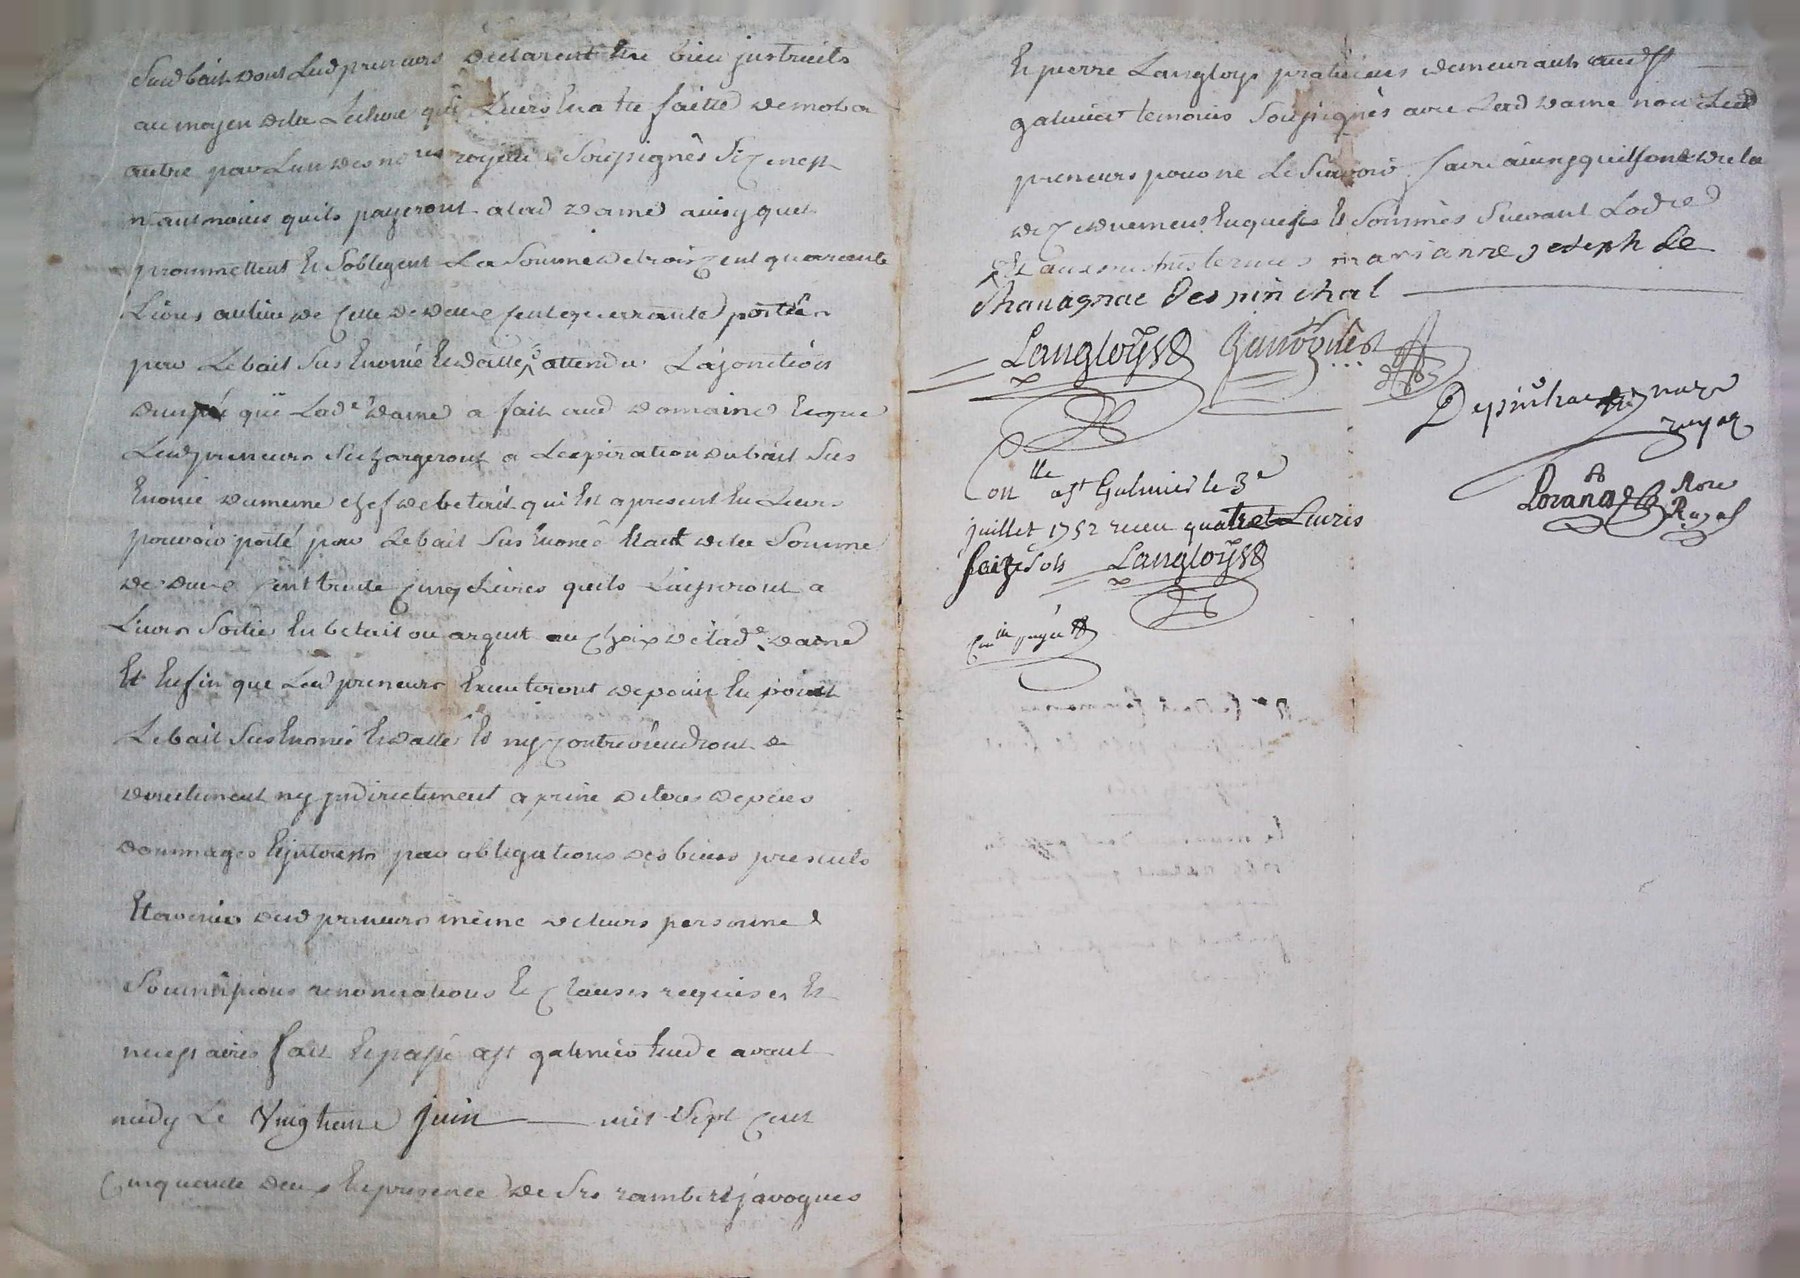 Sud bail dont Lesd preneurs declarent Etre bien instruits
au moyen de la Lecture quî Leurs En a Ete faitte de mot a
autre par Lun des no.res royaux Soussignés Si Ce nest
n'autmoins quils payeront a lad dame ainsy quils
prommettent Et Sobligent La Somme de trois Cent quarante
Livres au lieu de Celle de deux Cent quarrante portée
par Lebail Sus Enoncé Et datté attendu La jonction
dun pré quï Lad.e dame a fait aud domaine Et que
Lesd preneurs Se Chargeront a Lexpiration du bail Sus
Enoncé du meme Chef de betail qui Est a present En Leurs
pouvoir porté par Lebail Sus Enoncé Etant de la Somme
de deux Cent trente Cinq Livres quils Laisseront a
Leurs Sortie En betail ou argent au Choix de lad.e dame
Et Enfin que Lesd preneurs Executeront de point En point
Lebail Sus Enoncé Et datté Et ny Contreviendront
directement ny indirectement a peine de tous depens
dommages Et interests par obligations des biens presents
Et avenir desd preneurs même de leurs personne
Soumissions renonciations Et Clauses requises Et
necessaires fait Et passé a St galmier Etude avant
midy Le Vingtieme Juin mil Sept Cent
Cinquante deux En presence de Srs rambert javogues
Et pierre Langloys praticiens demeurants aud St
galmier temoins Soussignés avec Lad dame non Lesd
preneurs pour ne Le Scavoir faire ainsy quils ont declaré
de Ce duement Enquis Et Sommés Suivant Lord.e
Et aux susd termes marianne joseph de
Chavagnac Despinchal
Langloys Javogues
Depinhac no.re
royal
Con.lle a St Galmier le 3e
juillet 1752 receu quatre Livres
Seize Sols Langloys
No.re
Royal
C.lle payée